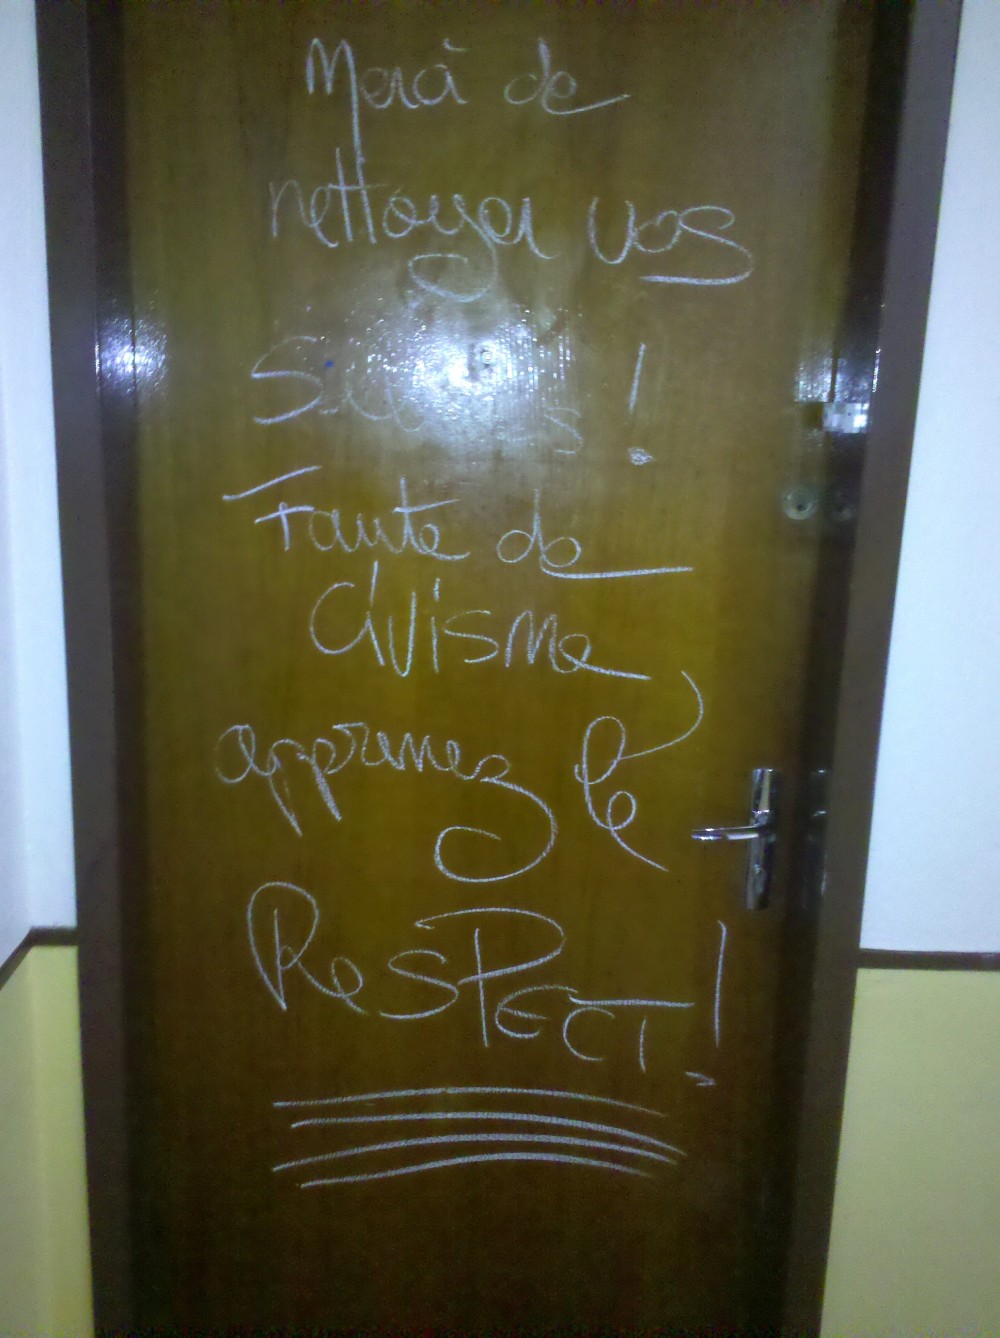 Merci de
nettoyer vos
!
Faute de
civisme,
apprenez le
ResPECT!